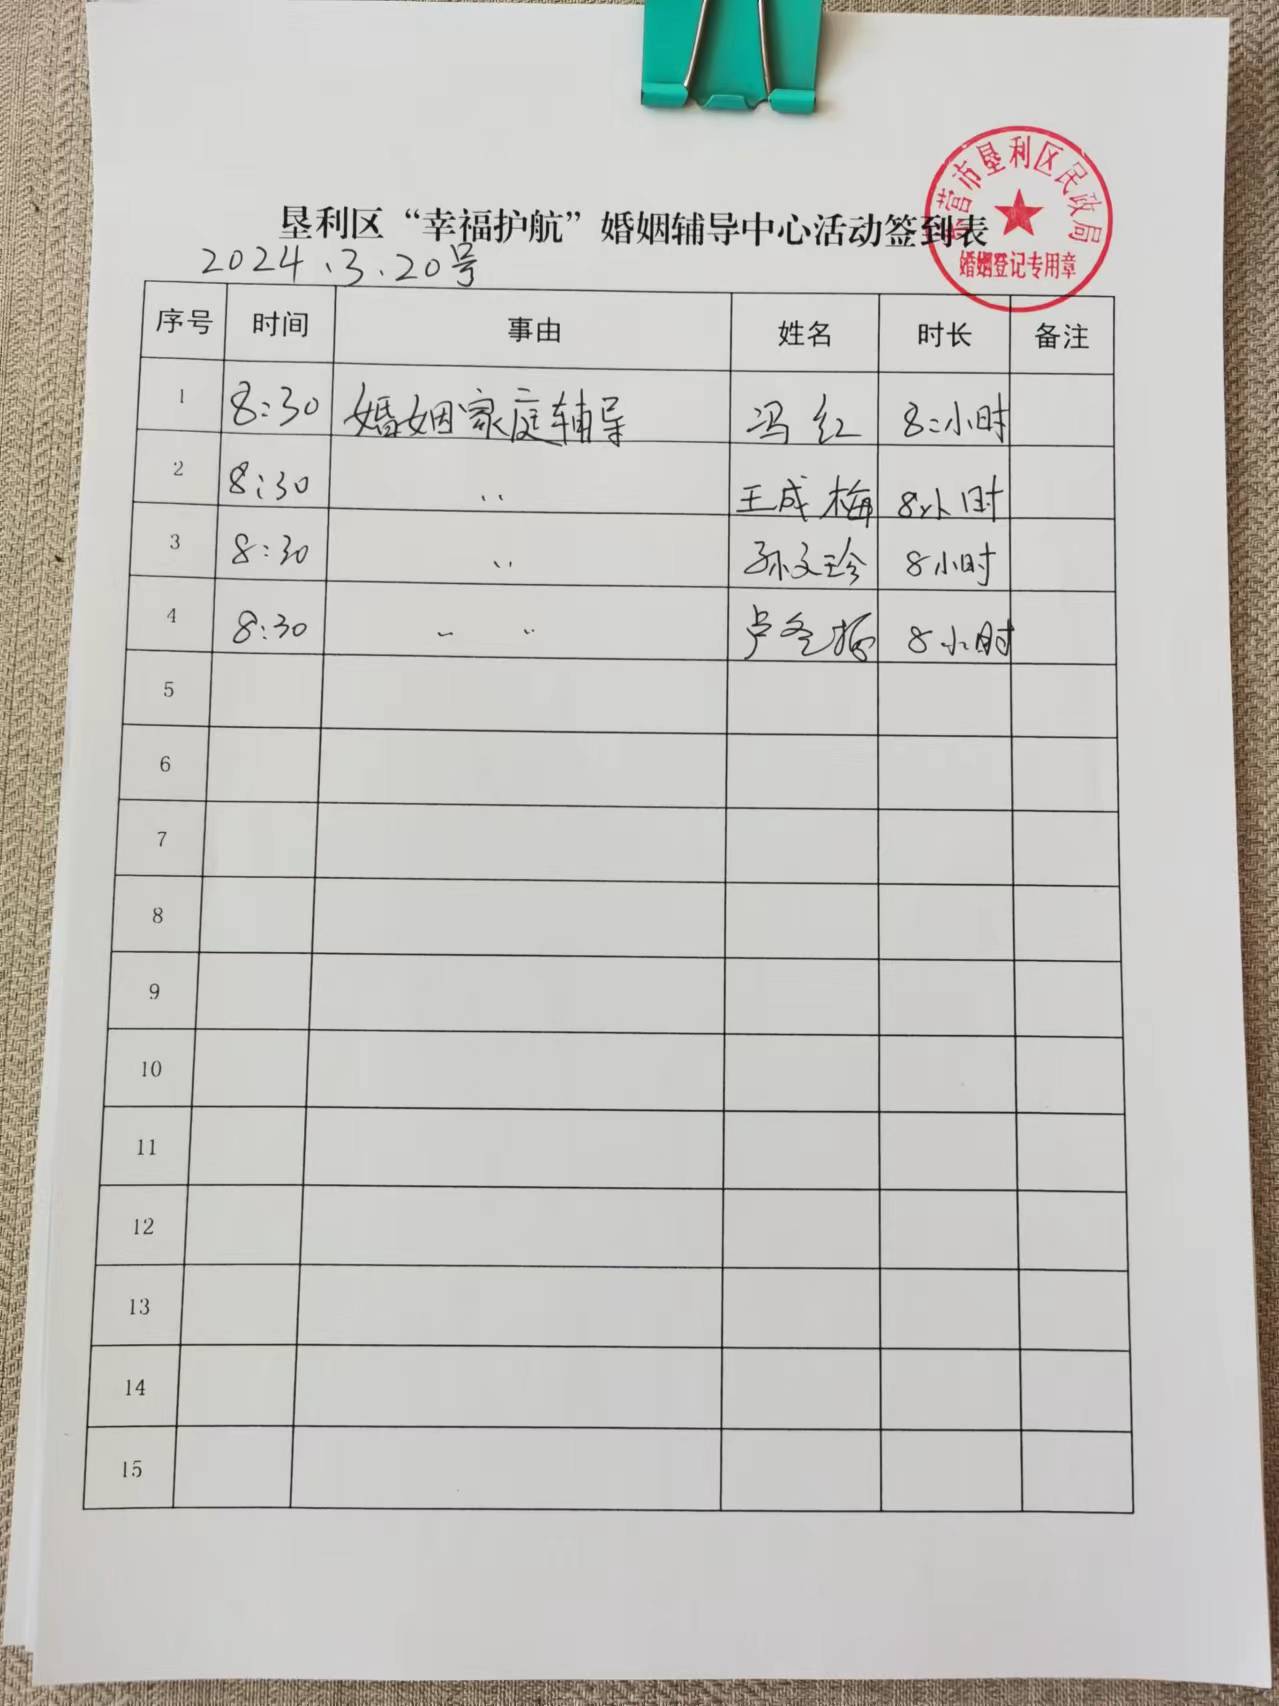 东营市垦利区民政局
婚姻登记专用章
垦利区“幸福护航”婚姻辅导中心活动签到表
2024.3.20号
序号 时间 事由 姓名 时长 备注
1 8:30 婚姻家庭辅导 冯红 8:小时
2 8:30 〃 王成梅 8小时
3 8:30 〃 孙文玲 8小时
4 8:30 〃 〃 卢冬 8小时
5
6
7
8
9
10
11
12
13
14
15